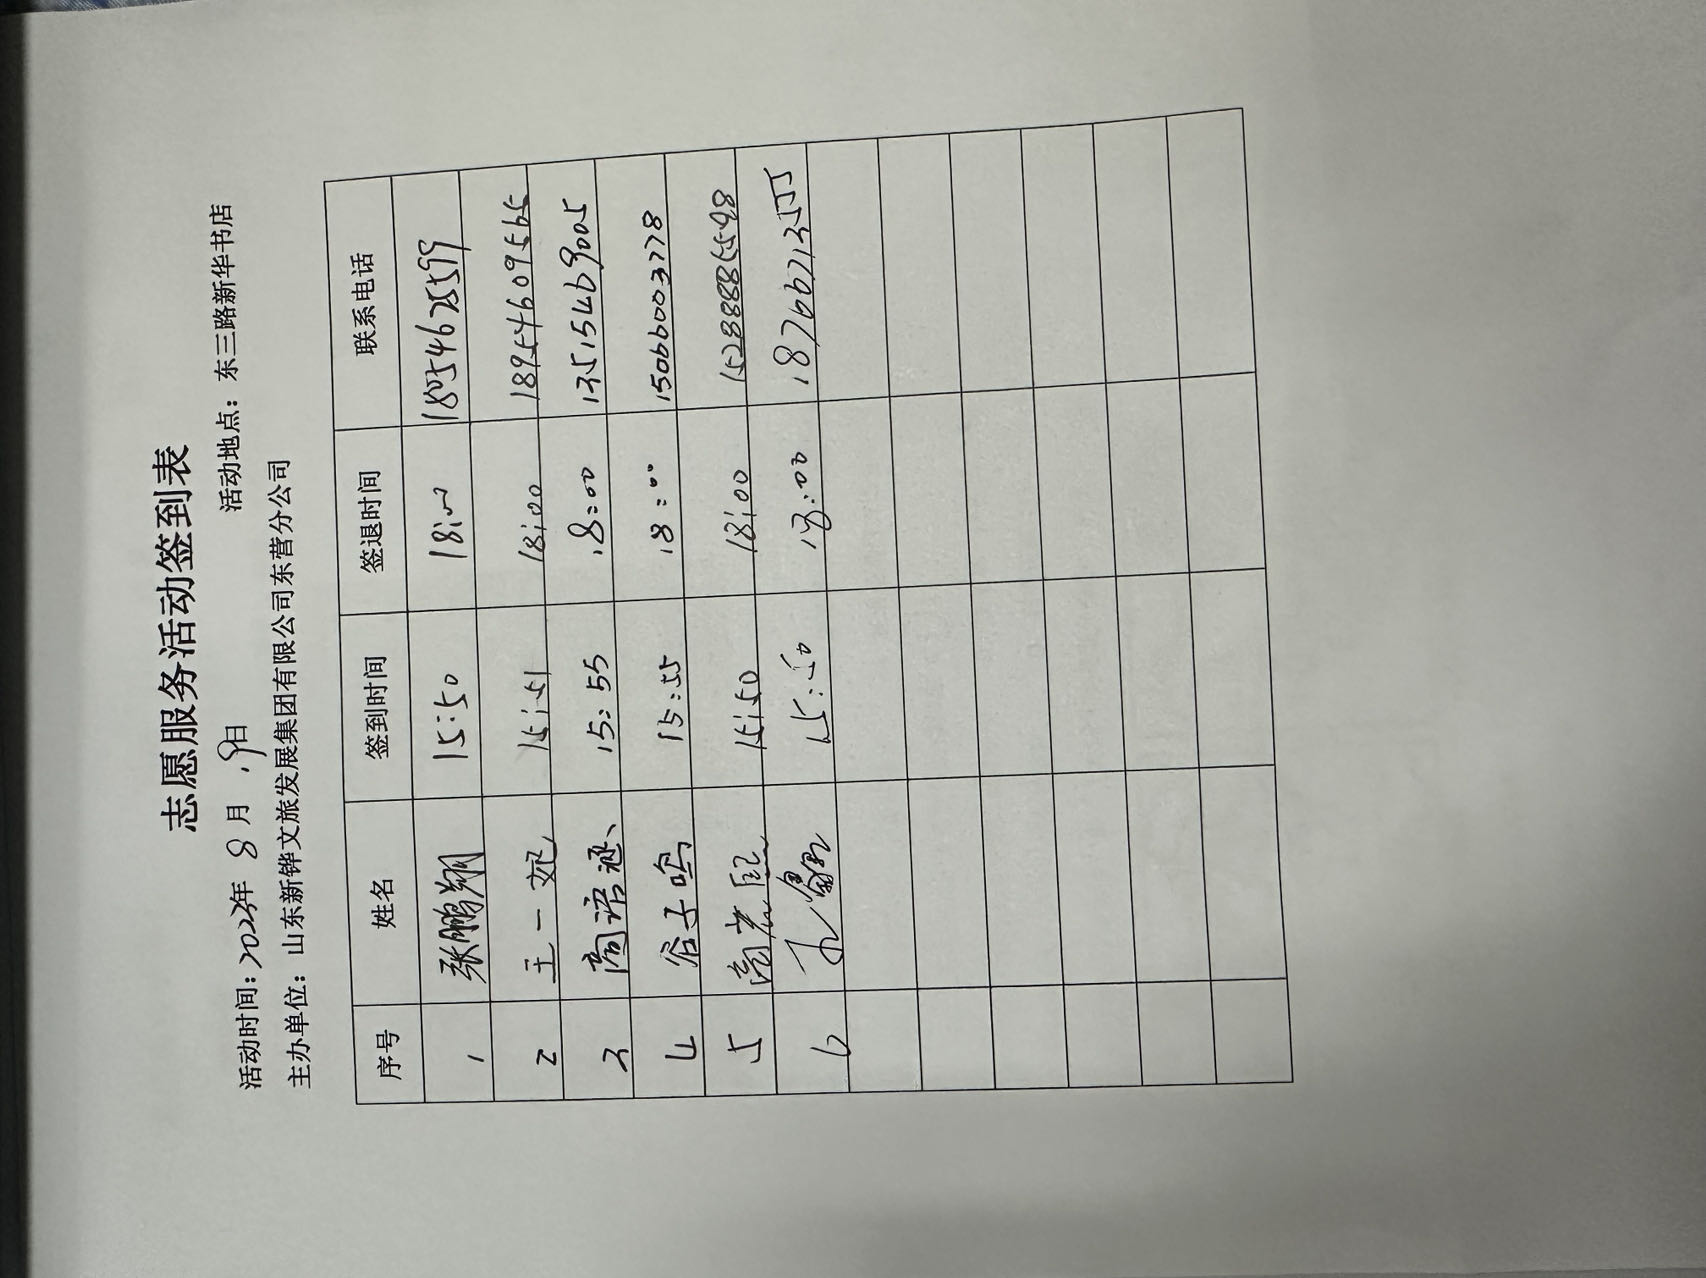 志愿服务活动签到表
活动时间：2023年 8 月 19日 活动地点：东三路新华书店
主办单位：山东新铧文旅发展集团有限公司东营分公司
序号 姓名 签到时间 签退时间 联系电话
1 张鹏翔 15:50 18:00 18054625599
2 王一妃 15:51 18:00 18954609565
3 商语涵 15:55 18:00 13515469005
4 谷子鸣 15:55 18:00 15066003778
5 15:50 18:00 15288885598
6 15:50 18:00 18766713555